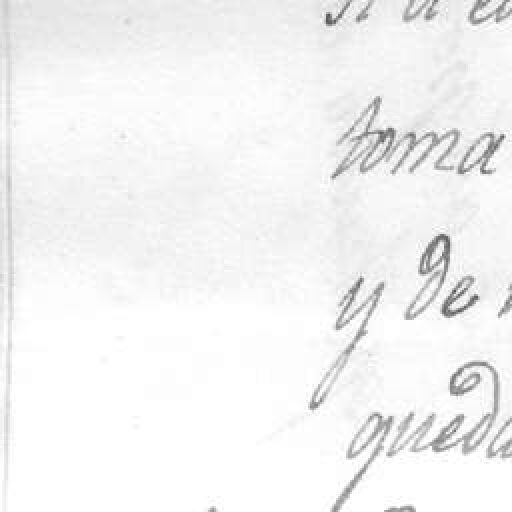 toma
y de
queda